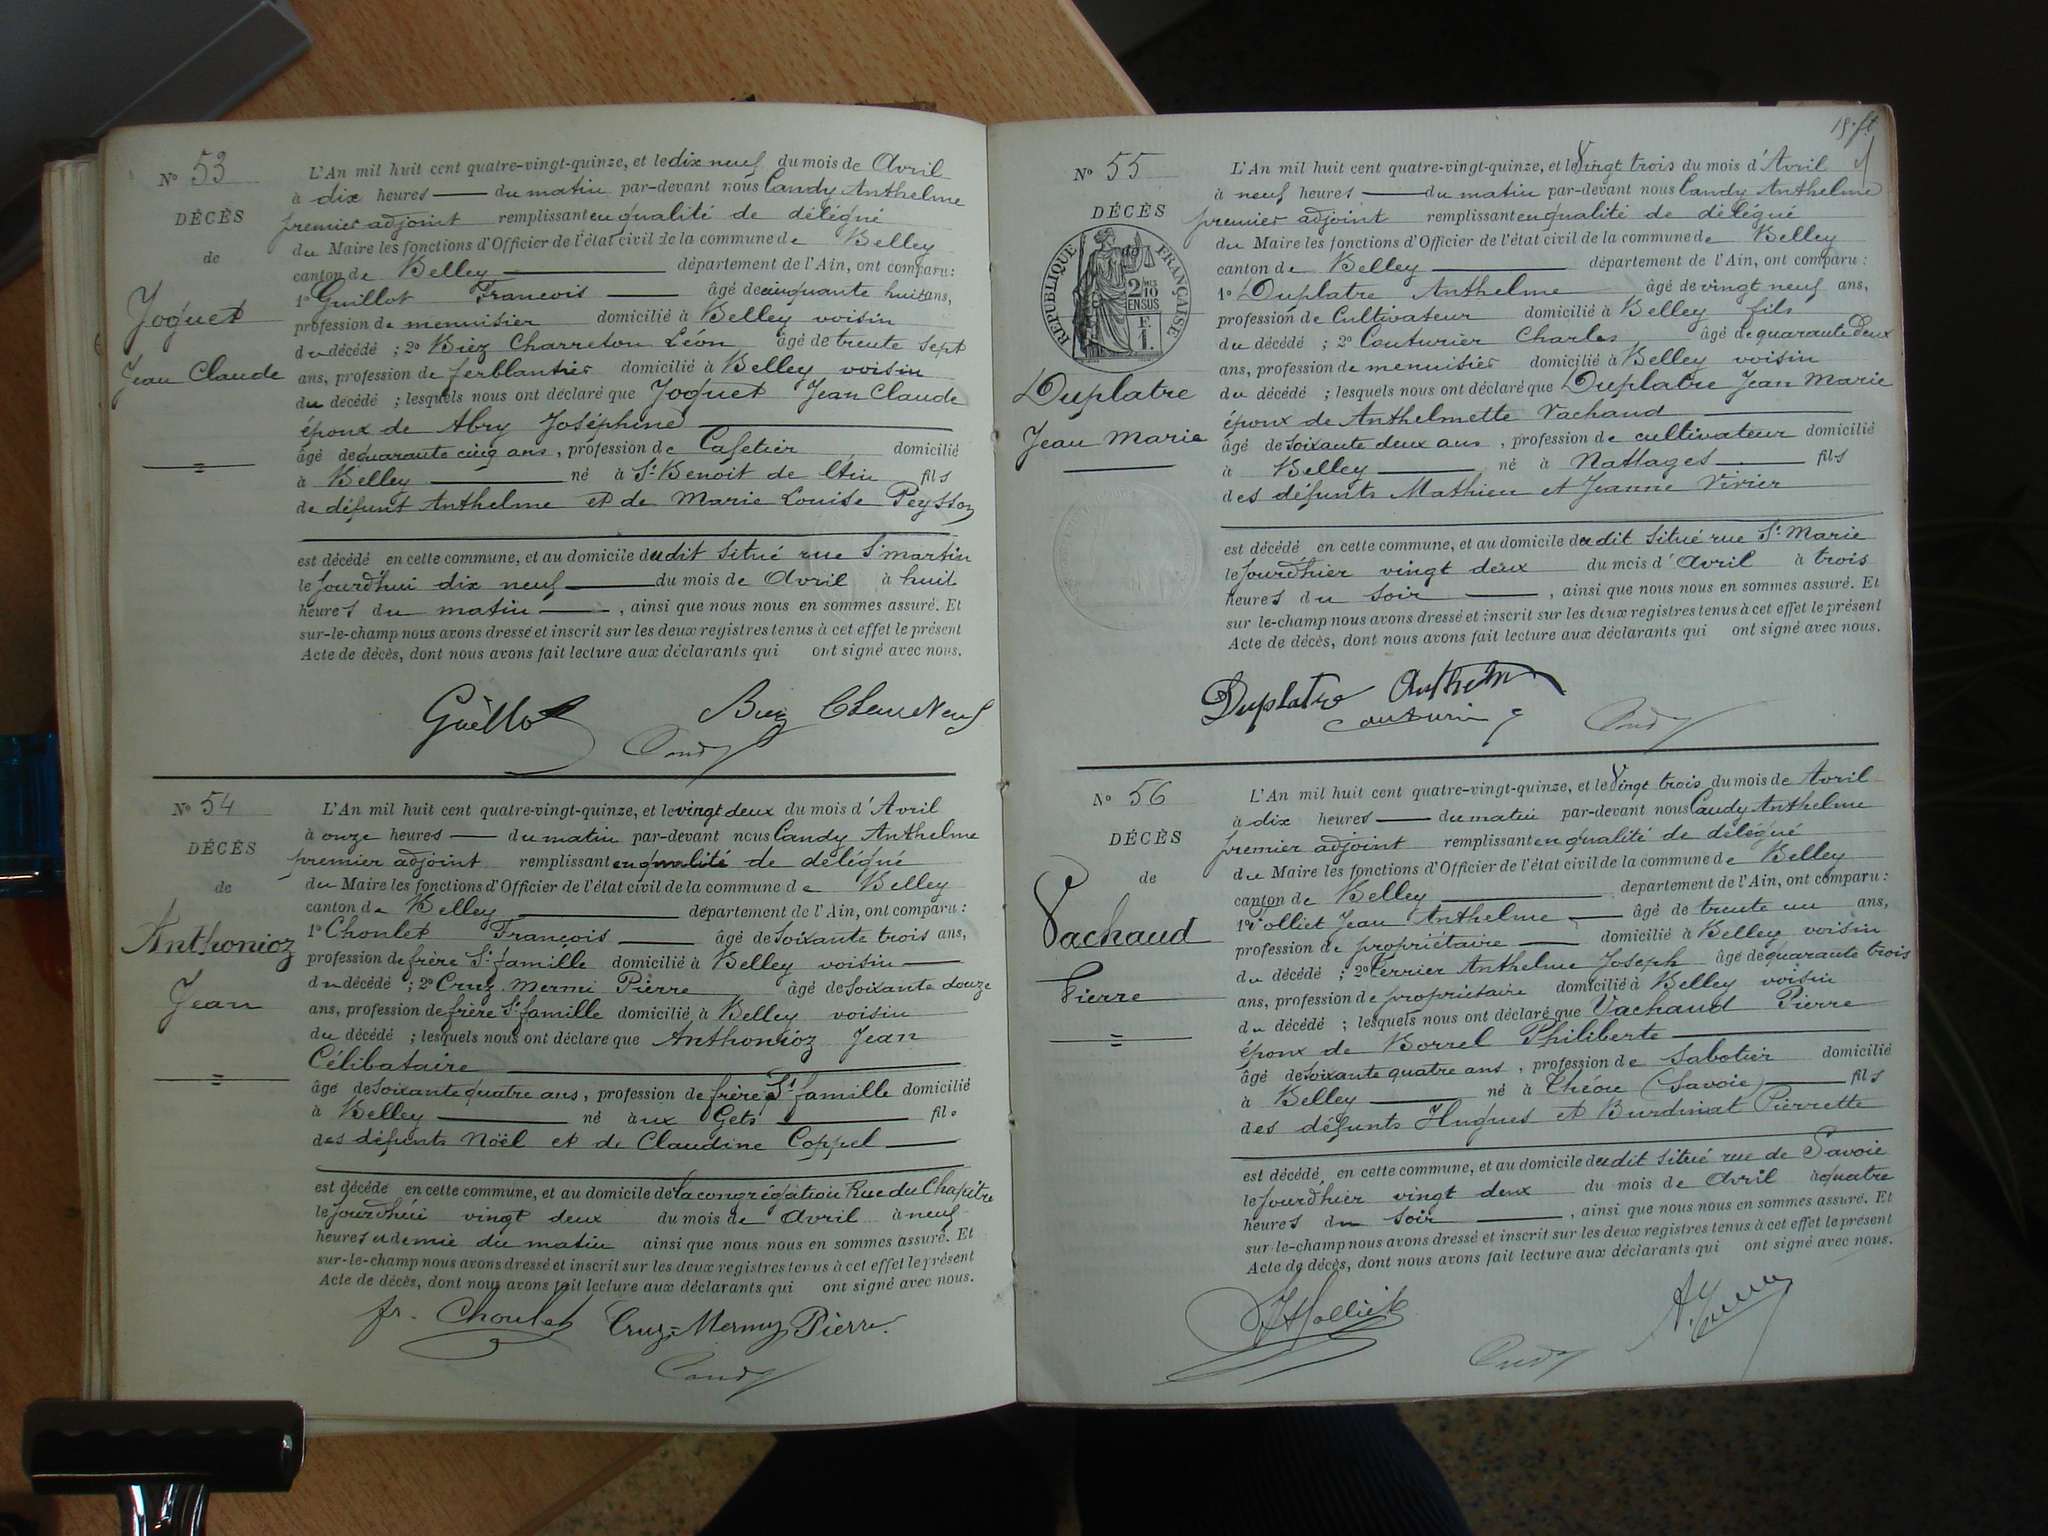 N° 53
DÉCÈS
de
Joguet
Jean Claude
L'An mil huit cent quatre-vingt-quinze, et le dix neuf du mois de Avril
à dix heures du matin par-devant nous Candy Anthelme
premier adjoint remplissant en qualité de délégué
du Maire les fonctions d'Officier de l'état civil de la commune de Belley
canton de Belley département de l'Ain, ont comparu :
1° Guillot Francois âgé de cinquante huit ans,
profession de menuisier domicilié à Belley voisin
du décédé ; 2° Biez Charreton Léon âgé de trente sept
ans, profession de ferblantier domicilié à Belley voisin
du décédé ; lesquels nous ont déclaré que Joguet Jean Claude
époux de Abry Joséphine
âgé de quarante cinq ans, profession de Cafetier domicilié
à Belley né à St Benoit de l'Ain fils
de défunt Anthelme et de Marie Louise Peysson
est décédé en cette commune, et au domicile dudit situé rue St martin
le jourd'hui dix neuf du mois de Avril à huit
heures du matin, ainsi que nous nous en sommes assuré. Et
sur-le-champ nous avons dressé et inscrit sur les deux registres tenus à cet effet le présent
Acte de décès, dont nous avons fait lecture aux déclarants qui ont signé avec nous.
Guillot Biez
Candy
N° 54
DÉCÈS
de
Anthonioz
Jean
L'An mil huit cent quatre-vingt-quinze, et le vingt deux du mois d'Avril
à onze heures du matin par-devant nous Candy Anthelme
premier adjoint remplissant en qualité de délégué
du Maire les fonctions d'Officier de l'état civil de la commune de Belley
canton de Belley département de l'Ain, ont comparu :
1° Choulet François âgé de soixante trois ans,
profession de frère Ste famille domicilié à Belley voisin
du décédé ; 2° Cruz Mermi Pierre âgé de soixante douze
ans, profession de frère Ste famille domicilié à Belley voisin
du décédé ; lesquels nous ont déclaré que Anthonioz Jean
Célibataire
âgé de soixante quatre ans, profession de frère Ste famille domicilié
à Belley né aux Gets fils
des défunts Noël et de Claudine Coppel
est décédé en cette commune, et au domicile de la congrégation Rue du Chapitre
le jourd'hui vingt deux du mois de Avril à neuf
heures et demie du matin ainsi que nous nous en sommes assuré. Et
sur-le-champ nous avons dressé et inscrit sur les deux registres tenus à cet effet le présent
Acte de décès, dont nous avons fait lecture aux déclarants qui ont signé avec nous.
fr. Choulet Cruz-Mermy Pierre
Candy
N° 55
DÉCÈS
RÉPUBLIQUE FRANÇAISE
2/10 EN SUS
F. 1.
Duplatre
Jean Marie
L'An mil huit cent quatre-vingt-quinze, et le Vingt trois du mois d'Avril
à neuf heures du matin par-devant nous Candy Anthelme
premier adjoint remplissant en qualité de délégué
du Maire les fonctions d'Officier de l'état civil de la commune de Belley
canton de Belley département de l'Ain, ont comparu :
1° Duplatre Anthelme âgé de vingt neuf ans,
profession de Cultivateur domicilié à Belley fils
du décédé ; 2° Couturier Charles âgé de quarante deux
ans, profession de menuisier domicilié à Belley voisin
du décédé ; lesquels nous ont déclaré que Duplatre Jean Marie
époux de Anthelmette Vachaud
âgé de soixante deux ans, profession de cultivateur domicilié
à Belley né à Nattages fils
des défunts Mathieu et Jeanne Vivier
est décédé en cette commune, et au domicile dudit situé rue Ste Marie
le jourd'hier vingt deux du mois d'Avril à trois
heures du soir, ainsi que nous nous en sommes assuré. Et
sur le-champ nous avons dressé et inscrit sur les deux registres tenus à cet effet le présent
Acte de décès, dont nous avons fait lecture aux déclarants qui ont signé avec nous.
Duplatre Anthelm
Candy
N° 56
DÉCÈS
de
Vachaud
Pierre
L'An mil huit cent quatre-vingt-quinze, et le Vingt trois du mois de Avril
à dix heures du matin par-devant nous Candy Anthelme
premier adjoint remplissant en qualité de délégué
du Maire les fonctions d'Officier de l'état civil de la commune de Belley
canton de Belley département de l'Ain, ont comparu :
1° Jolliet Jean Anthelme âgé de trente un ans,
profession de propriétaire domicilié à Belley voisin
du décédé ; 2° Ferrier Anthelme Joseph âgé de quarante trois
ans, profession de propriétaire domicilié à Belley voisin
du décédé ; lesquels nous ont déclaré que Vachaud Pierre
époux de Borrel Philiberte
âgé de soixante quatre ans, profession de sabotier domicilié
à Belley né à (Savoie) fils
des défunts Hugues et Burdinat Pierrette
est décédé en cette commune, et au domicile dudit situé rue de Savoie
le jourd'hier vingt deux du mois de Avril à quatre
heures du soir, ainsi que nous nous en sommes assuré. Et
sur le-champ nous avons dressé et inscrit sur les deux registres tenus à cet effet le présent
Acte de décès, dont nous avons fait lecture aux déclarants qui ont signé avec nous.
Candy